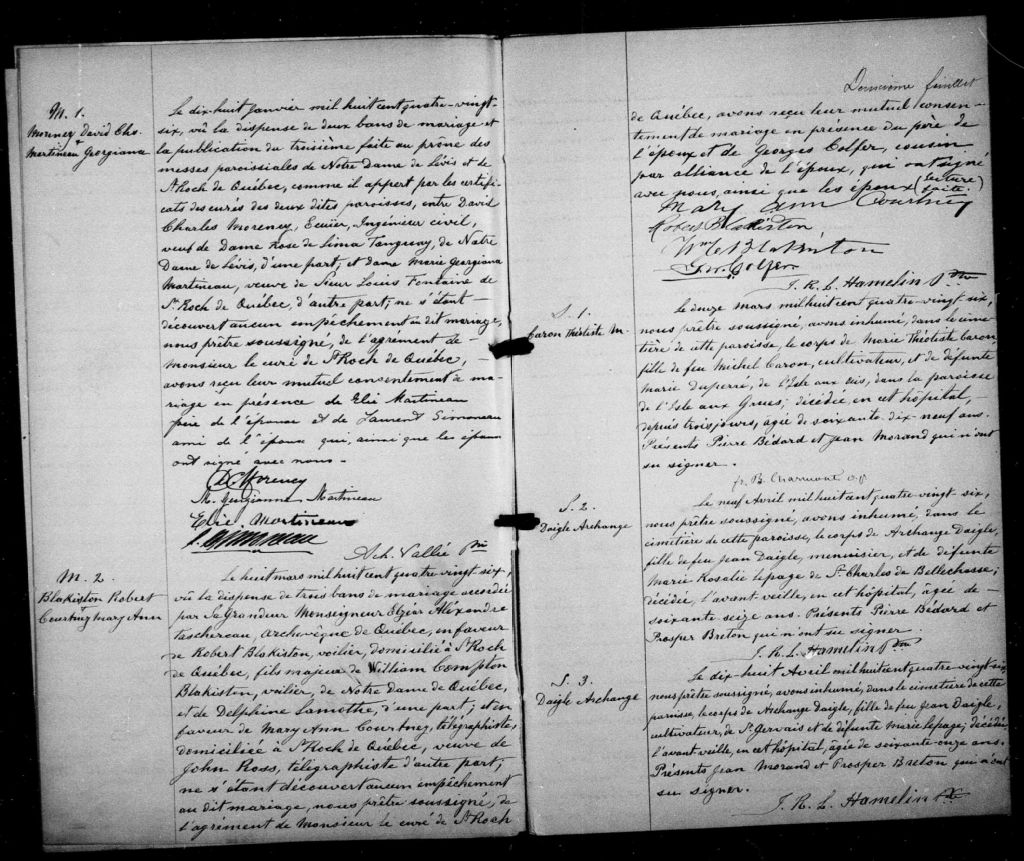 M. 1.
Morency David Chs.
&
Martineau Georgiana
Le dix huit janvier mil huit cent quatre-vingt-
six, vû la dispense de deux bans de mariage et
la publication du troisième faite au prône des
messes paroissiales de Notre Dame de Lévis et de
St Roch de Québec, comme il appert par les certifi-
cats des curés des deux dites paroisses, entre David
Charles Morency, Ecuier, Ingénieur civil,
veuf de Dame Rose de Lima Tanguay, de Notre
Dame de Lévis, d'une part, et dame Marie Georgiana
Martineau, veuve de Sieur Louis Fontaine de
St Roch de Québec, d'autre part; ne s'étant
découvert aucun empêchement au dit mariage,
nous prêtre soussigné, de l'agrément de
monsieur le curé de St Roch de Québec,
avons reçu leur mutuel consentement de ma-
riage en présence de Elié Martineau
père de l'épouse et de Laurent Simoneau
ami de l'époux qui, ainsi que les époux
ont signé avec nous -
D C Morency
M. Georgianna Martineau
Elie. Martineau
L. Simoneau
Ach. Vallée Ptre
M. 2.
Blakiston Robert
&
Courtney Mary Ann
Le huit mars mil huit cent quatre vingt six,
vû la dispense de trois bans de mariage accordée
par Sa Grandeur Monseigneur Elzéar Alexandre
Taschereau, archevêque de Québec, en faveur
de Robert Blakiston, voilier, domicilié à St Roch
de Québec, fils majeur de William Compton
Blakiston, voilier, de Notre Dame de Québec,
et de Delphine Lamothe, d'une part; et en
faveur de Mary Ann Courtney, télégraphiste,
domiciliée à St Roch de Québec, veuve de
John Ross, télégraphiste d'autre part;
ne s'étant découvert aucun empêchement
au dit mariage, nous prêtre soussigné, de
l'agrément de Monsieur le curé de St Roch
Deuxième feuillet
de Québec, avons reçu leur mutuel consen-
tement de mariage en présence du père de
l'époux et de Georges Colfer, cousin
par alliance de l'époux, qui ont signé
avec nous, ainsi que les époux (lecture faite.)
Mary Ann Courtney
Robert Blakiston
Wm C Blakiston
G. W. Colfer
J. R. L. Hamelin Ptre
S. 1.
Caron Théotiste M.
Le douze mars mil huit cent quatre-vingt six,
nous prêtre soussigné, avons inhumé, dans le cime-
tière de cette paroisse, le corps de Marie Théotiste Caron
fille de feu Michel Caron, cultivateur, et de défunte
Marie Duperré, de l'Isle aux Oies, dans la paroisse
de l'Isle aux Grues; décédée, en cet hôpital,
depuis trois jours, agée de soixante dix neuf ans.
Présents Pierre Bédard et Jean Morand qui n'ont
su signer.
fr. B. Charmont o.p.
S. 2.
Daigle Archange
Le neuf Avril mil huit cent quatre-vingt six,
nous prêtre soussigné, avons inhumé, dans le
cimetière de cette paroisse, le corps de Archange Daigle,
fille de feu Jean Daigle, menuisier, et de défunte
Marie Rosalie Lepage de St Charles de Bellechasse;
décédée, l'avant veille, en cet hôpital, âgée de
soixante seize ans. Présents Pierre Bédard et
Prosper Breton qui n'ont su signer.
J. R. L. Hamelin Ptre
S. 3.
Daigle Archange
Le dix-huit Avril mil huit cent quatre-vingt six
nous prêtre soussigné, avons inhumé, dans le cimetière de cette
paroisse, le corps de Archange Daigle, fille de feu Jean Daigle,
cultivateur, de St Gervais et de défunte Marie Lepage; décédée,
l'avant veille, en cet hôpital, âgée de soixante-onze ans.
Présents Jean Morand et Prosper Breton qui n'ont
su signer.
J. R. L. Hamelin Ptre